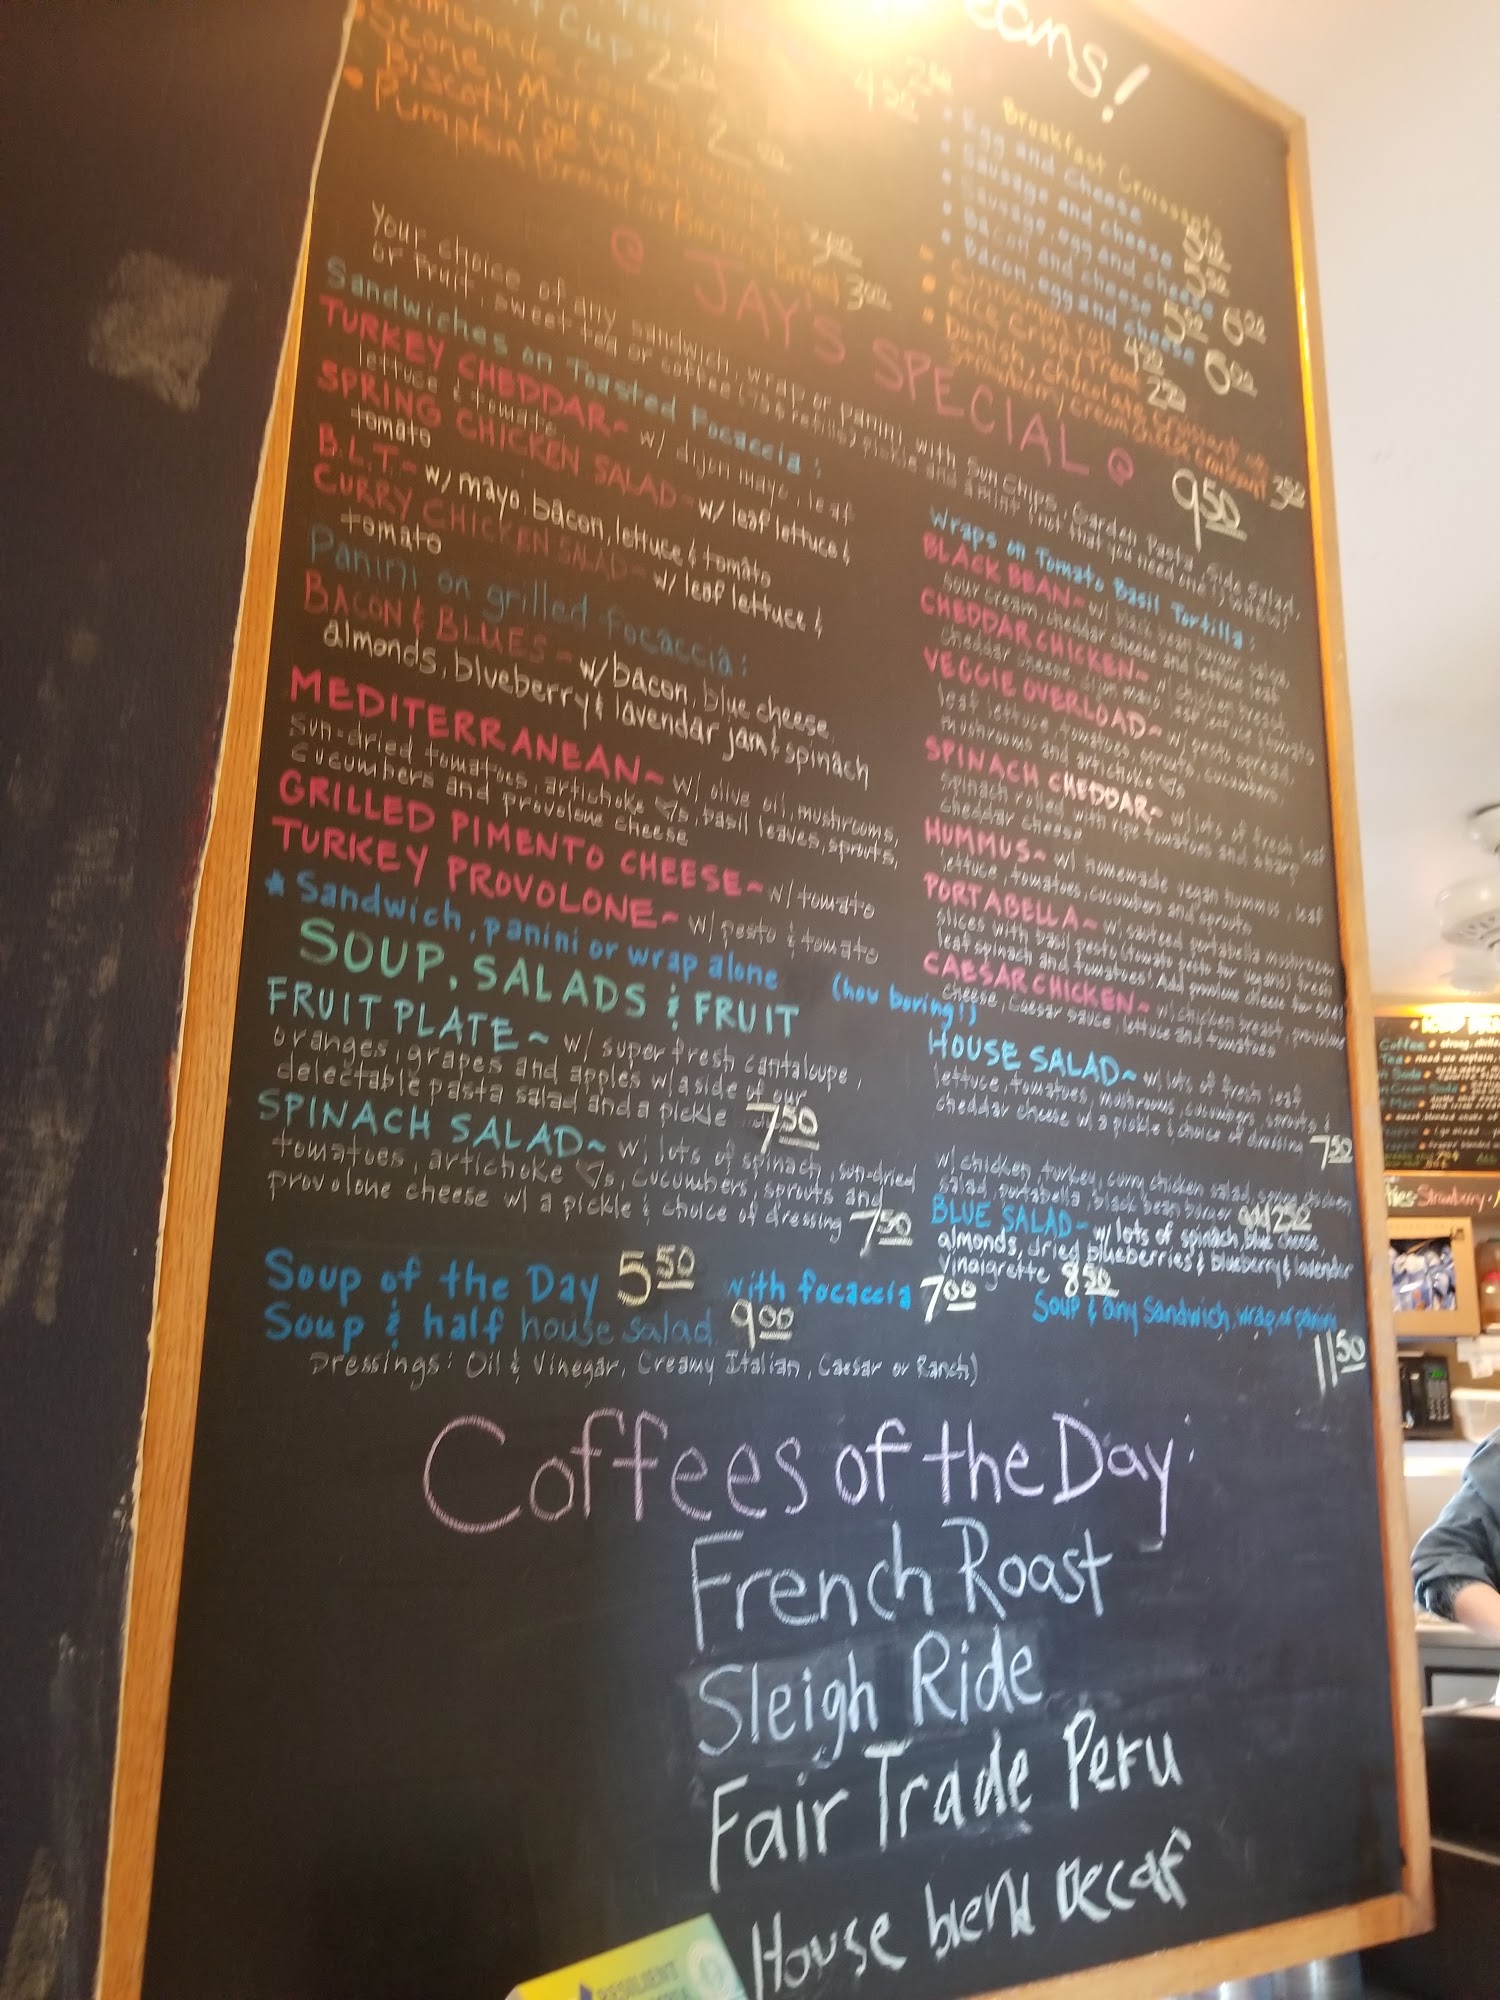 eans!
Cup 2
Scone, Muffin, Brownie 2
Biscotti / ge vegan Cookie 3.00
Pumpkin Bread or Banana Bread 3.00
Breakfast Croissants
Egg and cheese
Sausage and cheese
Sausage, egg and cheese 6.00
Bacon and cheese 5.00
Bacon, egg and cheese 6.00
Cinnamon roll
Rice Crispy Treat
Danish, chocolate Croissant
Strawberry Cream Cheese Croissant
@ JAY'S SPECIAL @ 9.50
Your choice of any sandwich, wrap or panini with Sun Chips, Garden Pasta Side Salad,
or fruit, sweet tea or coffee pickle and a mint (not that you need one!), whew!
Sandwiches on Toasted Focaccia:
TURKEY CHEDDAR~ w/ dijon mayo, leaf
lettuce & tomato
SPRING CHICKEN SALAD~ w/ leaf lettuce &
tomato
B.L.T.~ w/ mayo, bacon, lettuce & tomato
CURRY CHICKEN SALAD~ w/ leaf lettuce &
tomato
Panini on grilled focaccia:
BACON & BLUES~ w/ bacon, blue cheese
almonds, blueberry & lavendar jam & spinach
MEDITERRANEAN~ w/ olive oil, mushrooms,
sun-dried tomatoes, artichoke ♡s, basil leaves, sprouts,
cucumbers and provolone cheese
GRILLED PIMENTO CHEESE~ w/ tomato
TURKEY PROVOLONE~ w/ pesto & tomato
★ Sandwich, panini or wrap alone (how boring!)
Wraps on Tomato Basil Tortilla:
BLACK BEAN~ w/ black bean burger, salsa,
sour cream, cheddar cheese and lettuce leaf
CHEDDAR CHICKEN~ w/ chicken breast,
cheddar cheese, dijon mayo, leaf lettuce & tomato
VEGGIE OVERLOAD~ w/ pesto spread,
leaf lettuce, tomatoes, sprouts, cucumbers,
mushrooms and artichoke ♡s
SPINACH CHEDDAR~ w/ lots of fresh leaf
spinach rolled with ripe tomatoes and sharp
cheddar cheese
HUMMUS~ w/ homemade vegan hummus, leaf
lettuce, tomatoes, cucumbers and sprouts
PORTABELLA~ w/ sauteed portabella mushroom
slices with basil pesto (tomato pesto for vegans) fresh
leaf spinach and tomatoes! Add provolone cheese for
CAESAR CHICKEN~ w/ chicken breast, provolone
cheese, Caesar sauce, lettuce and tomatoes
SOUP, SALADS & FRUIT
FRUIT PLATE~ w/ super fresh cantaloupe,
oranges, grapes and apples w/ a side of our
delectable pasta salad and a pickle 7.50
SPINACH SALAD~ w/ lots of spinach, sun-dried
tomatoes, artichoke ♡s, cucumbers, sprouts and
provolone cheese w/ a pickle & choice of dressing 7.50
HOUSE SALAD~ w/ lots of fresh leaf
lettuce, tomatoes, mushrooms, cucumbers, sprouts &
cheddar cheese w/ a pickle & choice of dressing 7.50
w/ chicken, turkey, curry chicken salad, spring chicken
salad, portabella, black bean burger add 2.50
BLUE SALAD~ w/ lots of spinach, blue cheese
almonds, dried blueberries & blueberry & lavendar
vinaigrette 8.50
Soup of the Day 5.50 with focaccia 7.00
Soup & half house salad 9.00
Soup & any sandwich, wrap or panini
11.50
Dressings: Oil & Vinegar, Creamy Italian, Caesar or Ranch)
Coffees of the Day:
French Roast
Sleigh Ride
Fair Trade Peru
House blend Decaf
RESILIENT
Coffee
Strawberry